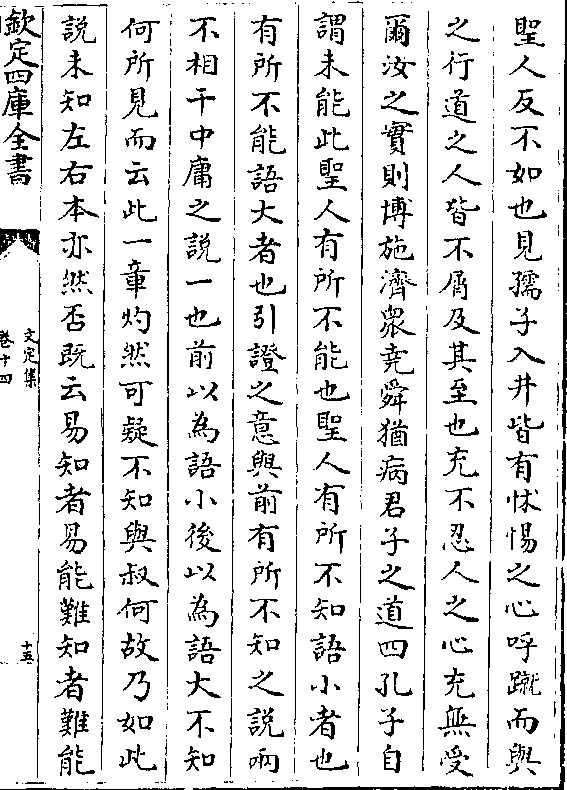 聖人反不如也見孺子入井皆有怵惕之心呼蹴而與
之行道之人皆不屑及其至也充不忍人之心充無受
爾汝之實則博施濟衆堯舜猶病君子之道四孔子自
謂未能此聖人有所不能也聖人有所不知語小者也
有所不能語大者也引證之意與前有所不知之説兩
不相干中庸之説一也前以為語小後以為語大不知
何所見而云此一章灼然可疑不知與叔何故乃如此
説未知左右本亦然否既云易知者易能難知者難能
欽定四庫全書
文定集
卷十四
十五